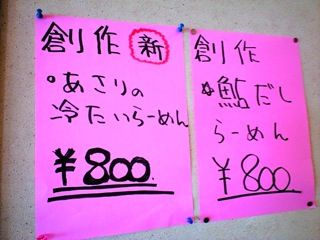 創作 新
・あさりの
冷たいらーめん
¥800.
創作
鮎だし
らーめん
¥800